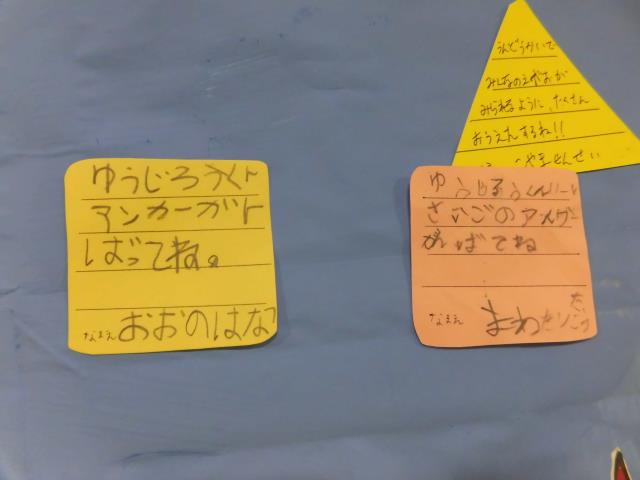 うんどうかいで
みんなのえがおが
みられるように、たくさん
おうえんするね!!
やませんせい
ゆうじろうくん
アンカーガト
ばってね。
なまえ おおのはな
ゆうじろうくんリレー
さいごのアンカー
がばてね
なまえ